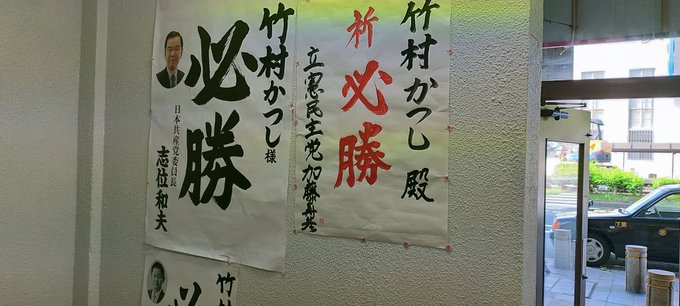 竹村かつし 殿
祈 必勝
立憲民主党 加藤
竹村かつし 様
必勝
日本共産党委員長
志位和夫
竹村
必